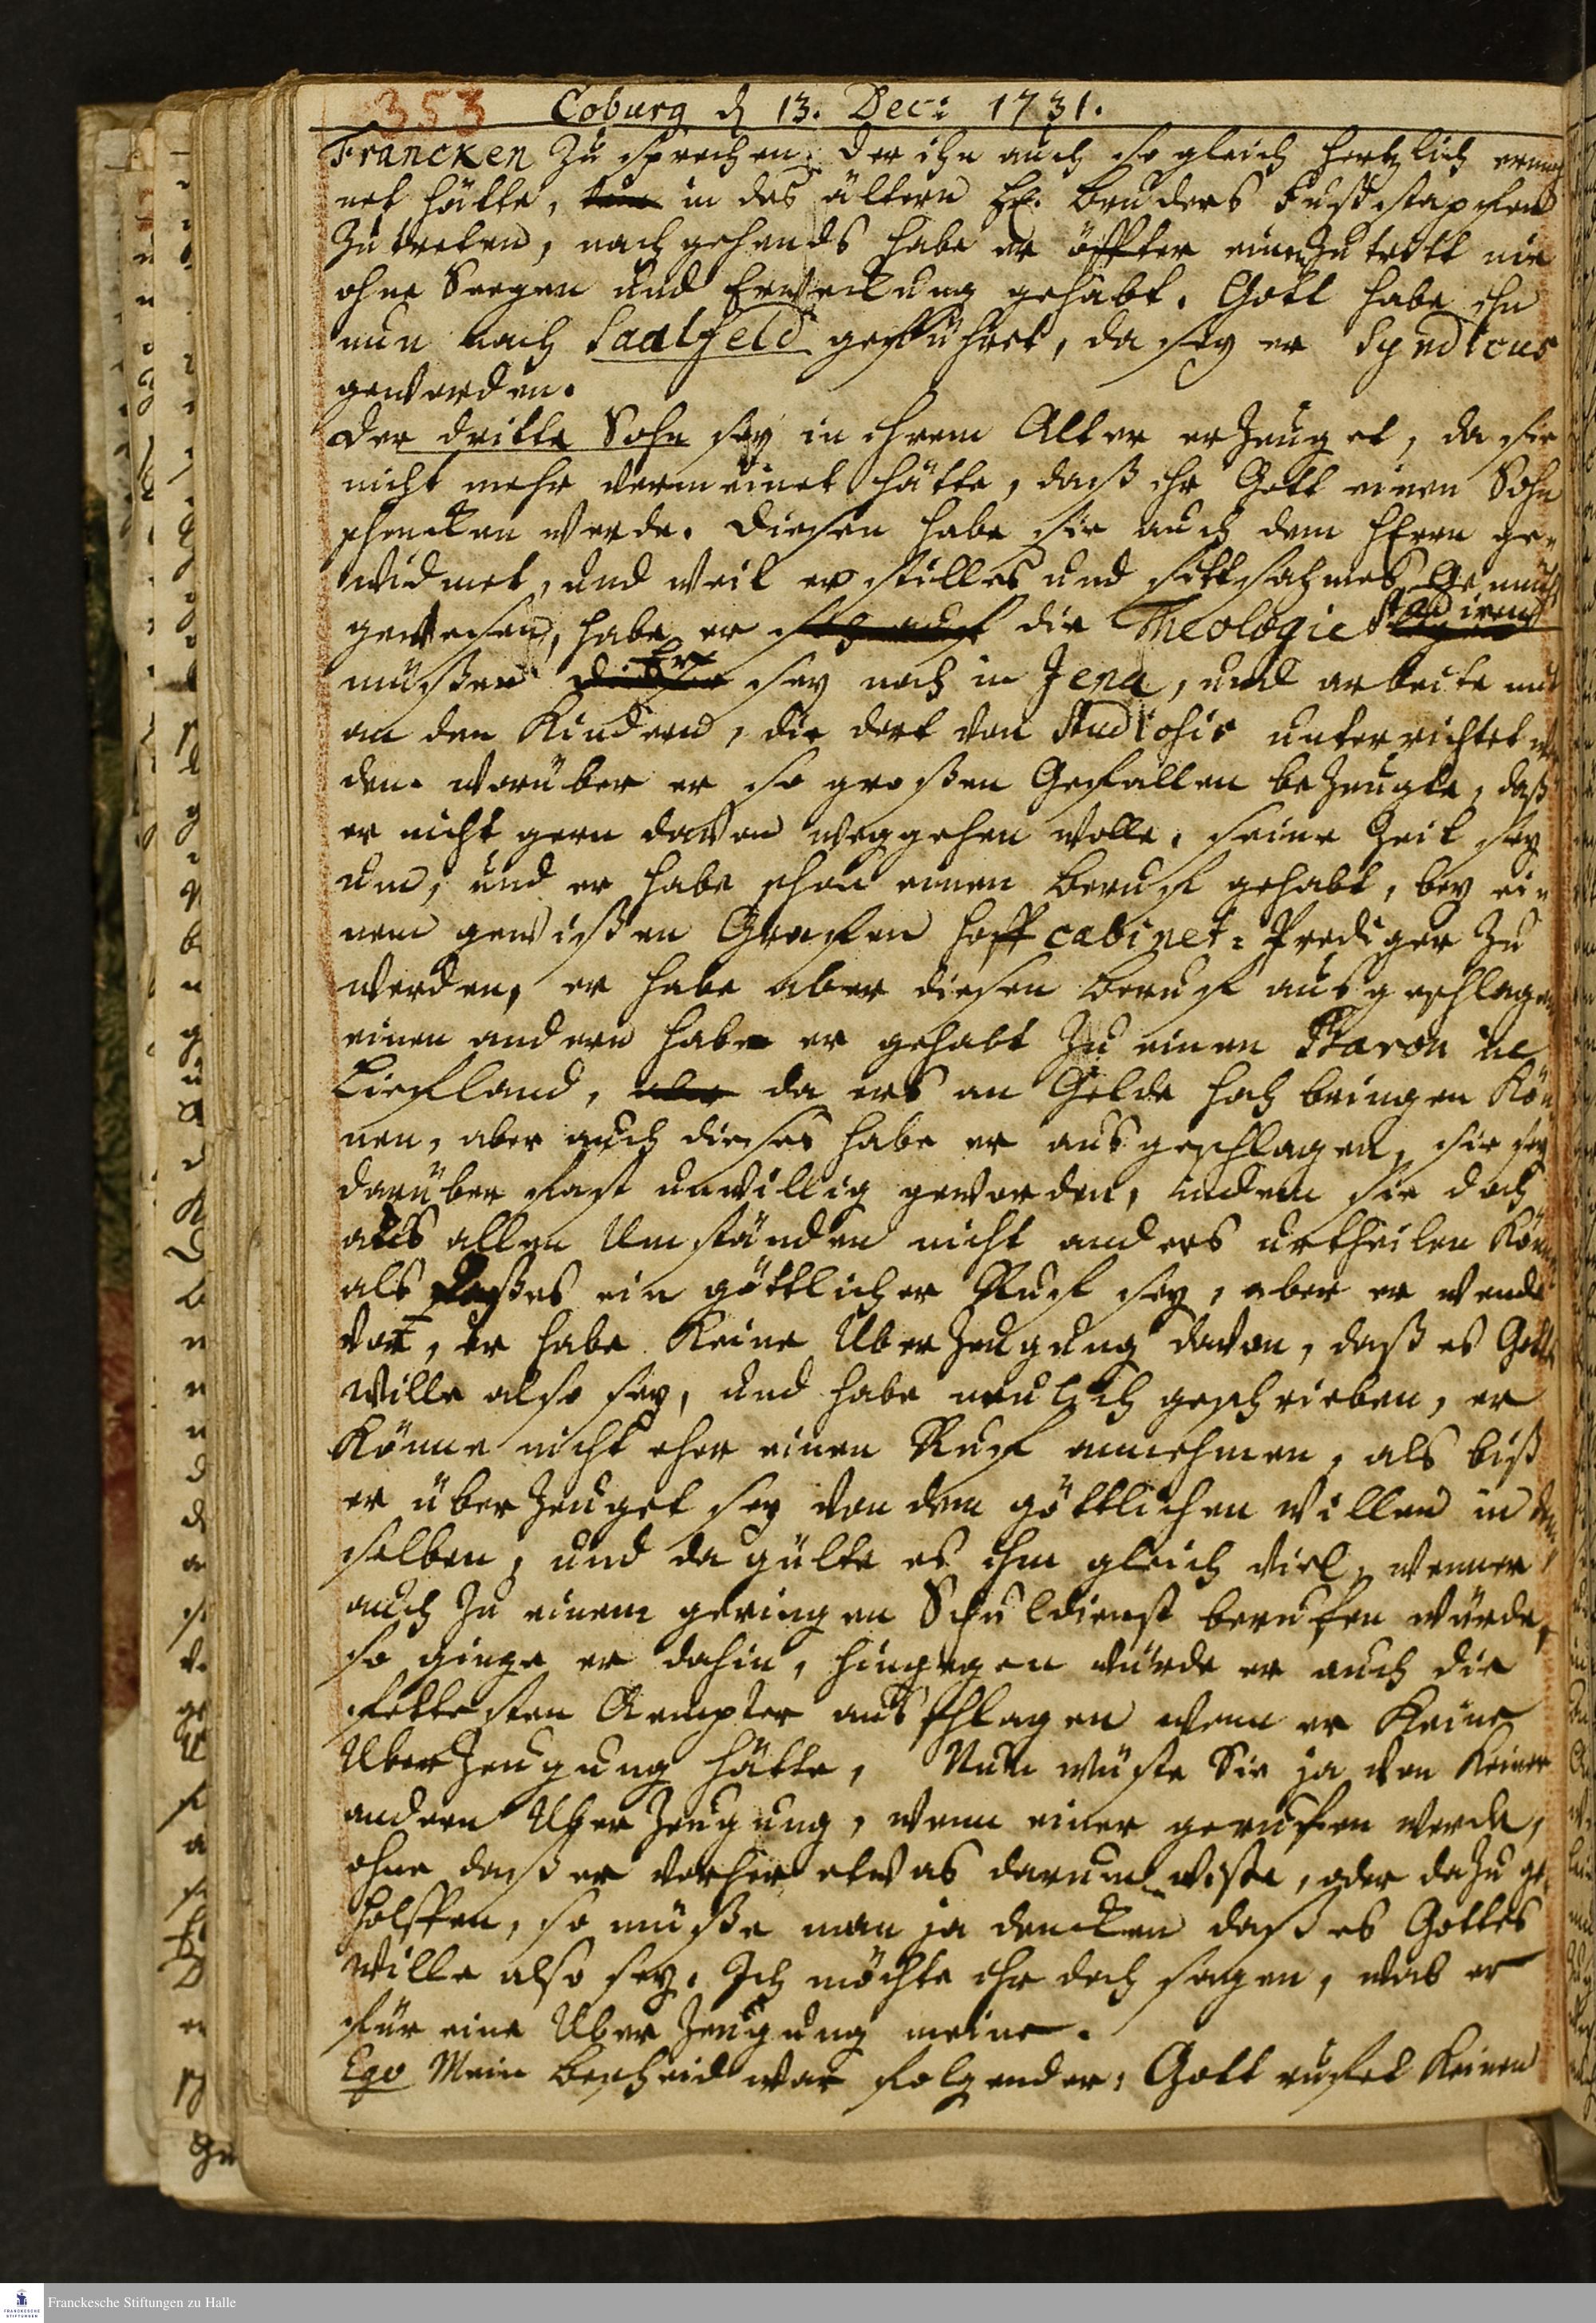 353 Coburg d 13. Dec: 1731.
Francken zu sprechen. der ihn auch so gleich hertzlich ermah
net hätte, in des ältern H. Bruders Fußstapfen
zu treten, nach gehends habe er öffter einen Zutritt nie
ohne Seegen und Erweckung gehabt. Gott habe ihn
nun nach Saalfeld geführet, da sey er Syndicus
geworden.
Der dritte Sohn sey in ihrem Alter erzeuget, da sie
nicht mehr vermeinet hätte, daß ihr Gott einen Sohn
schencken werde. Diesen habe sie auch dem HErrn ge-
widmet, und weil er stilles und sittsahmes Gemüth
gewesen, habe er sich auf die Theologie Studiren
müßen. Er sey noch in Jena, und arbeite mit
an den Kindern, die dort von Studiosis unterrichtet wer
den. worüber er so großen Gefallen bezeugte, daß
er nicht gern davon weggehen wolle. seine Zeit sey
um, und er habe schon einen Beruf gehabt, bey ei-
nem gewißen Grafen Hoff cabinet-Prediger zu
werden, er habe aber diesen Beruf ausgeschlagen
einen andern habe er gehabt zu einen Baron in
Liefland, da ers an Gelde hoch bringen Kön
nen, aber auch dieses habe er ausgeschlagen, sie sey
darüber fast unwillig geworden, indem sie doch
aus allen Umständen nicht anders urtheilen Könne
als daß es ein göttlicher Ruf sey, aber er wende
vor, er habe Keine Uberzeugung davon, daß es Gottes
Wille also sey, und habe neulich geschrieben, er
Könne nicht eher einen Ruf annehmen, als biß
er überzeuget sey von dem göttlichen Willen in dem
selben, und da gülte es ihm gleich viel, wenn er
auch zu einem geringen Schuldienst berufen würde,
so ginge er dahin, hingegen würde er auch die
fettesten Aempter ausschlagen wenn er Keine
Uberzeugung hätte, Nun wüste Sie ja von Keiner
andern Uberzeugung, wenn einer gerufen werde,
ohne daß er vorher etwas darum wiste, oder dazu ge
holffen, so müße man ja dencken daß es Gottes
Wille also sey. Ich möchte ihr doch sagen, was er
für eine Uberzeugung meine.
Ego Mein Bescheid war folgender, Gott rufet Keinen
Franckesche Stiftungen zu Halle